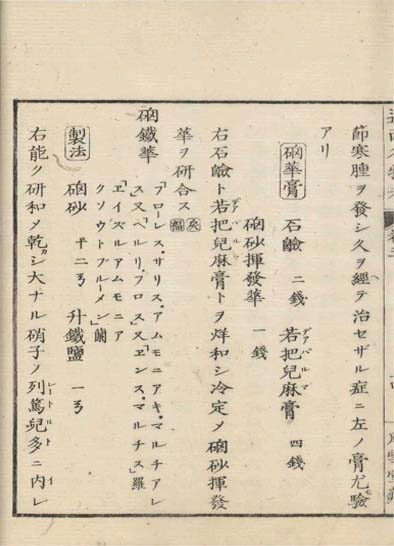 節寒腫ヲ發シ久ヲ經テ治セザル症ニ左ノ膏尤驗
アリ
硇華膏 石鹼 二錢 若把兒麻膏 四錢
硇砂揮發華 一錢
右石鹼ト若把兒麻膏トヲ烊和シ冷定メ硇砂揮發
華ヲ研合ス
硇鐵華
「フローレス、サリス、アムモニアキ、マルチアレ
ス」又「ヘルリ、フロス」又「ヱンス、マルチス」羅
「ヱイズルアムモニア
クソウトブルーメン」蘭
製法 硇砂 十二ヲ 升鐵鹽 一ヲ
右能ク研和メ乾カシ大ナル硝子ノ列篤兒多ニ内レ